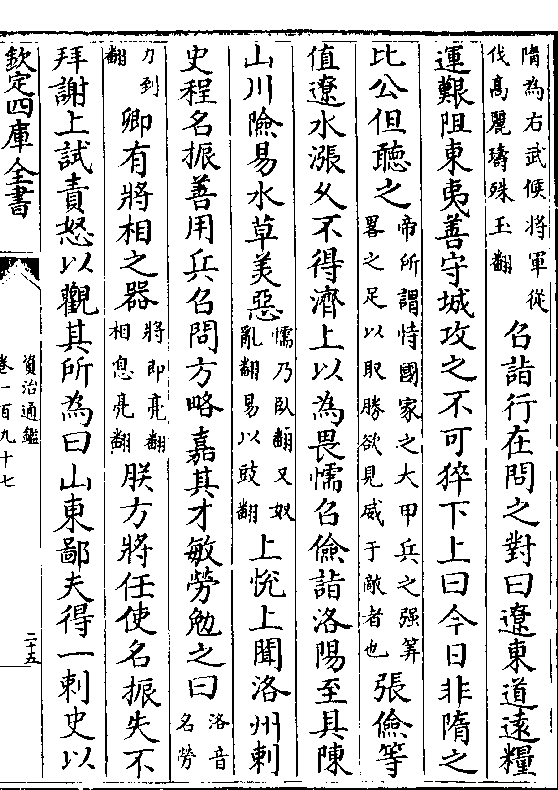 隋為右武候將軍從
伐髙麗璹殊玉翻
召詣行在問之對曰遼東道逺糧
運艱阻東夷善守城攻之不可猝下上曰今日非隋之
比公但聽之
帝所謂恃國家之大甲兵之强筭
畧之足以取勝欲見威于敵者也
張儉等
值遼水漲久不得濟上以為畏懦召儉詣洛陽至具陳
山川險易水草美惡
懦乃臥翻又奴
亂翻易以豉翻
上悅上聞洺州刺
史程名振善用兵召問方略嘉其才敏勞勉之曰
洺音
名勞
力到
翻
卿有將相之器
將即亮翻
相息亮翻
朕方將任使名振失不
拜謝上試責怒以觀其所為曰山東鄙夫得一刺史以
欽定四庫全書
資治通鑑
卷一百九十七
二十五